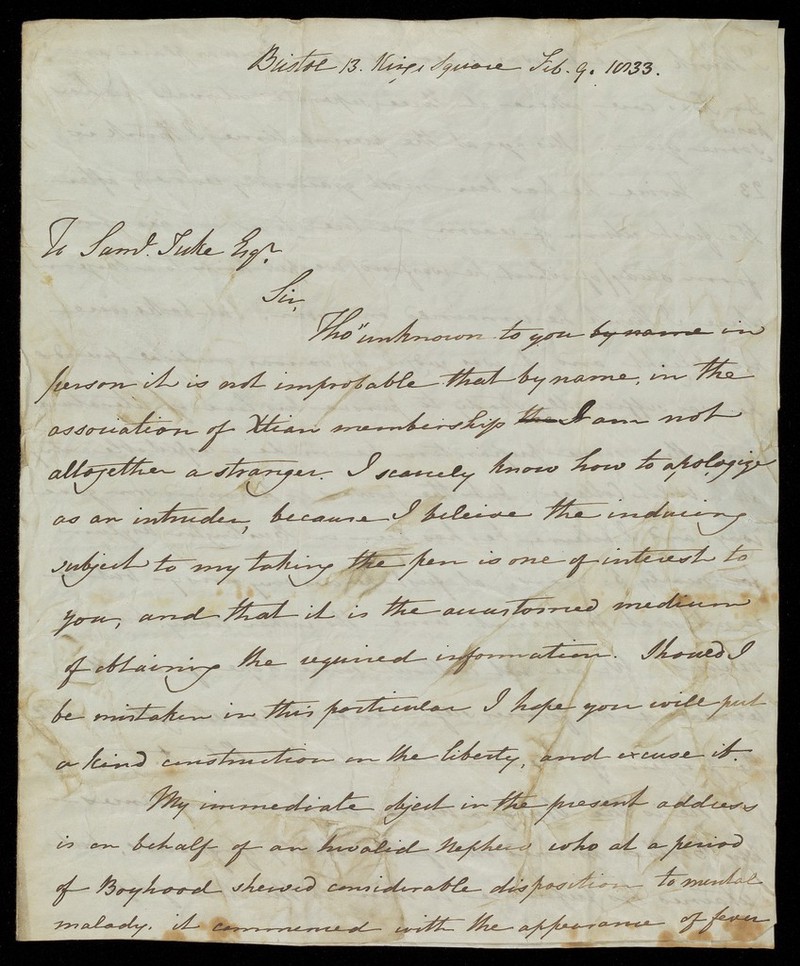 Bristol 13. Kings Square Feb. 9. 1833.
To Saml. Tuke Esqr.
Sir,
Tho" unknown to you by name in
person it is not improbable that by name, in the
association of Xtian membership the I am not
altogether a stranger. I scarcely know how to apologize
as an intruder, because I beleive the inducing
subject to my taking the pen is one of interest to
you, and that it is the accustomed medium
of obtaining the required information. Should I
be mistaken in this particular I hope you will put
a kind construction on the liberty, and excuse it.
My immediate object in the present address
is on behalf of an Invalid Nephew who at a period
of Boyhood shewed considerable disposition to mental
malady. it commenced with the appearance of fever